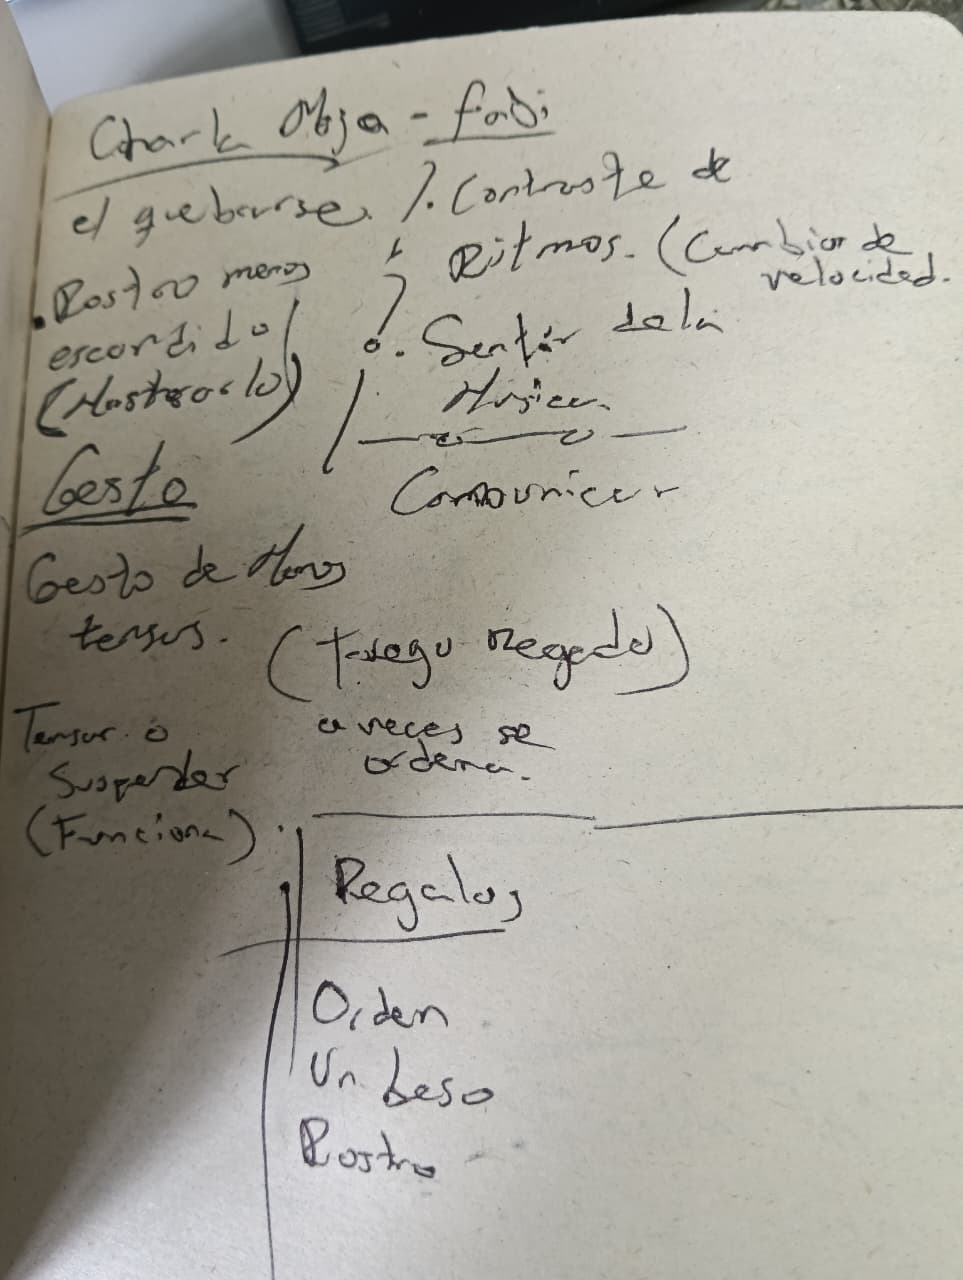 Charla Moja - Fabi
el quebrarse.
. Rostro menos
escondido
(Mostrarlo)
. Contraste de
Ritmos. (Cambior de
velocidad.
. Sentir de la
Musica.
Comounicar
Gesto
Gesto de Manos
tensas.
(Fuego Regado)
a veces se
ordena.
Tensar o
Suspender
(Funciona)
Regalos
Orden
Un beso
Rostro